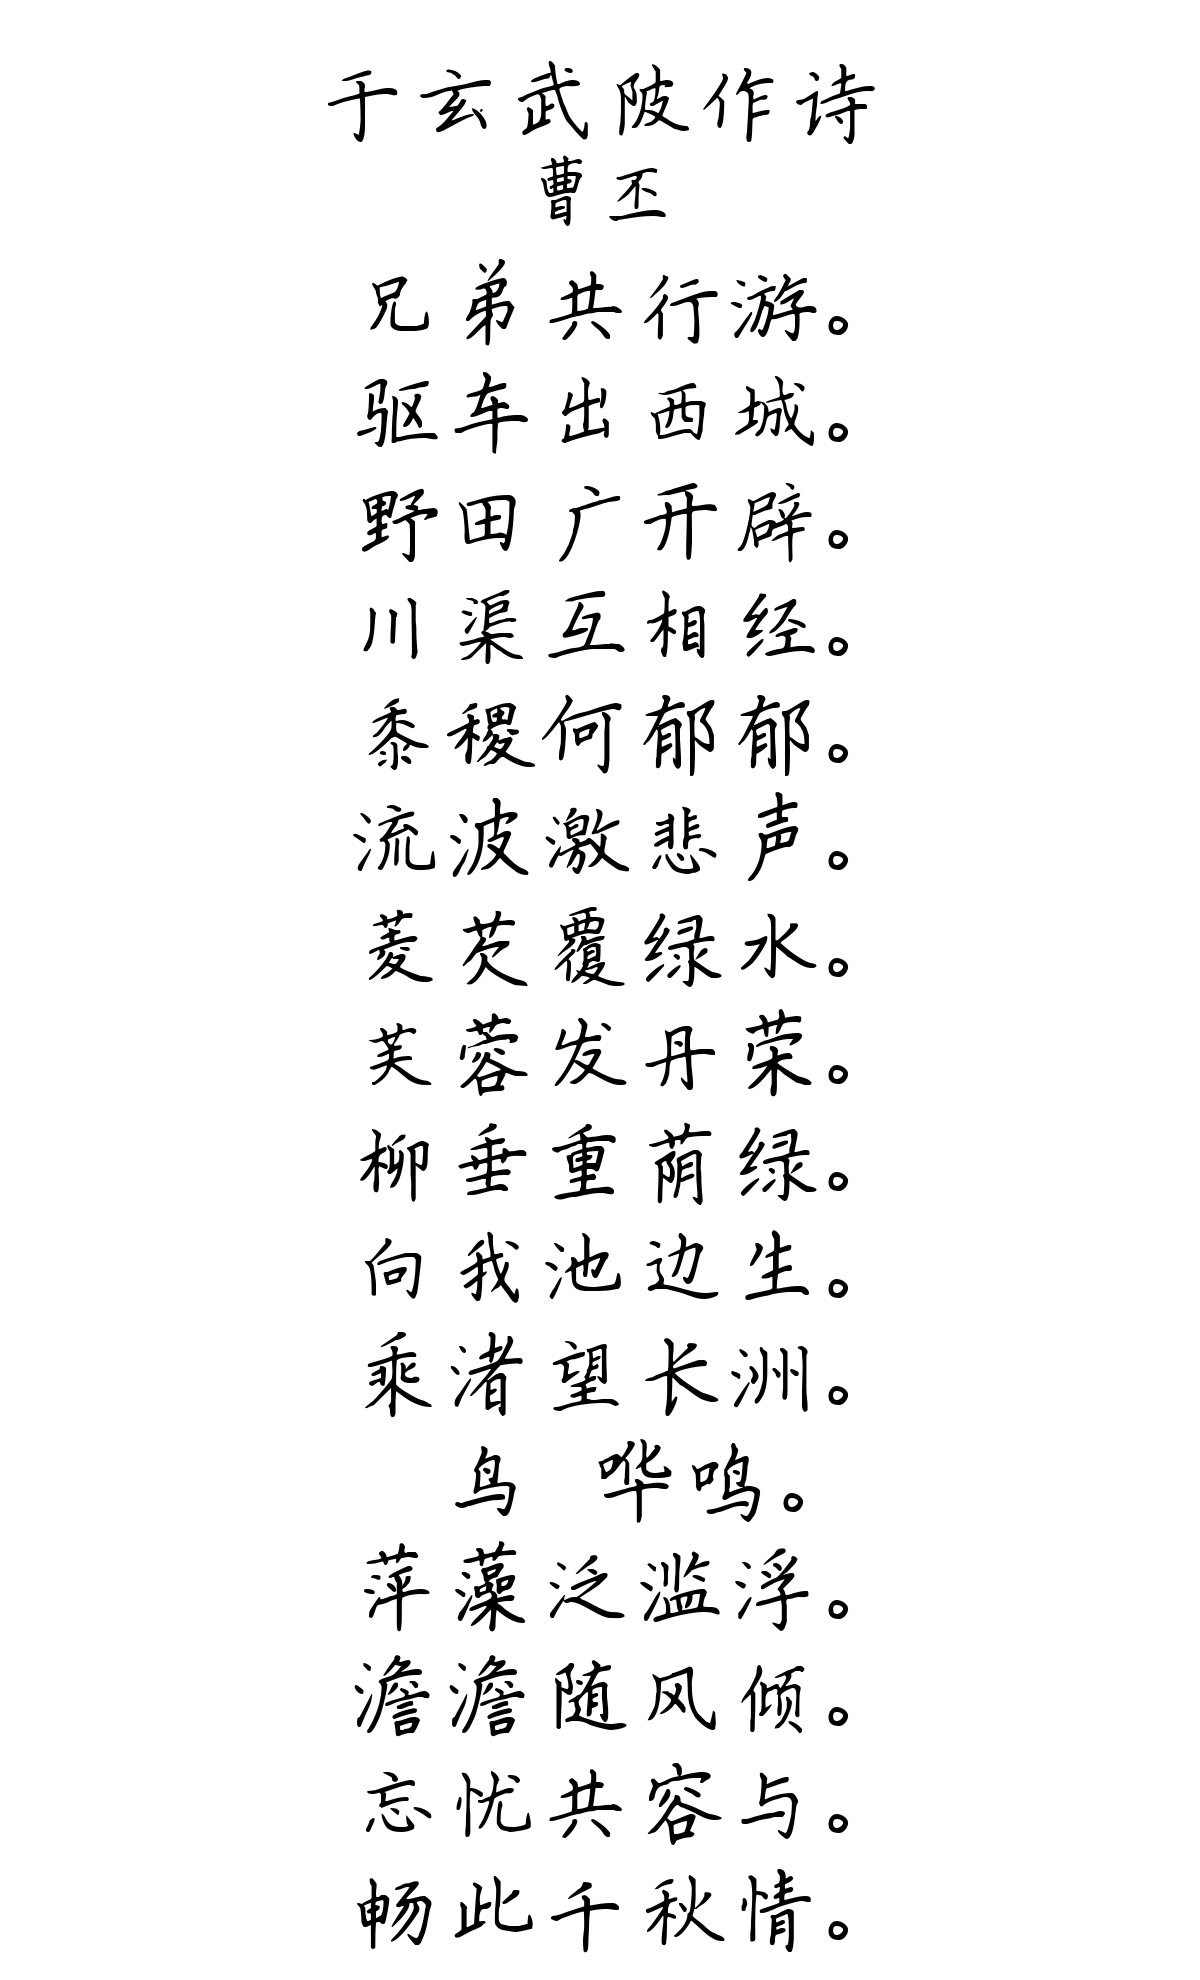 于玄武陂作诗
曹丕
兄弟共行游。
驱车出西城。
野田广开辟。
川渠互相经。
黍稷何郁郁。
流波激悲声。
菱芡覆绿水。
芙蓉发丹荣。
柳垂重荫绿。
向我池边生。
乘渚望长洲。
鸟 哗鸣。
萍藻泛滥浮。
澹澹随风倾。
忘忧共容与。
畅此千秋情。